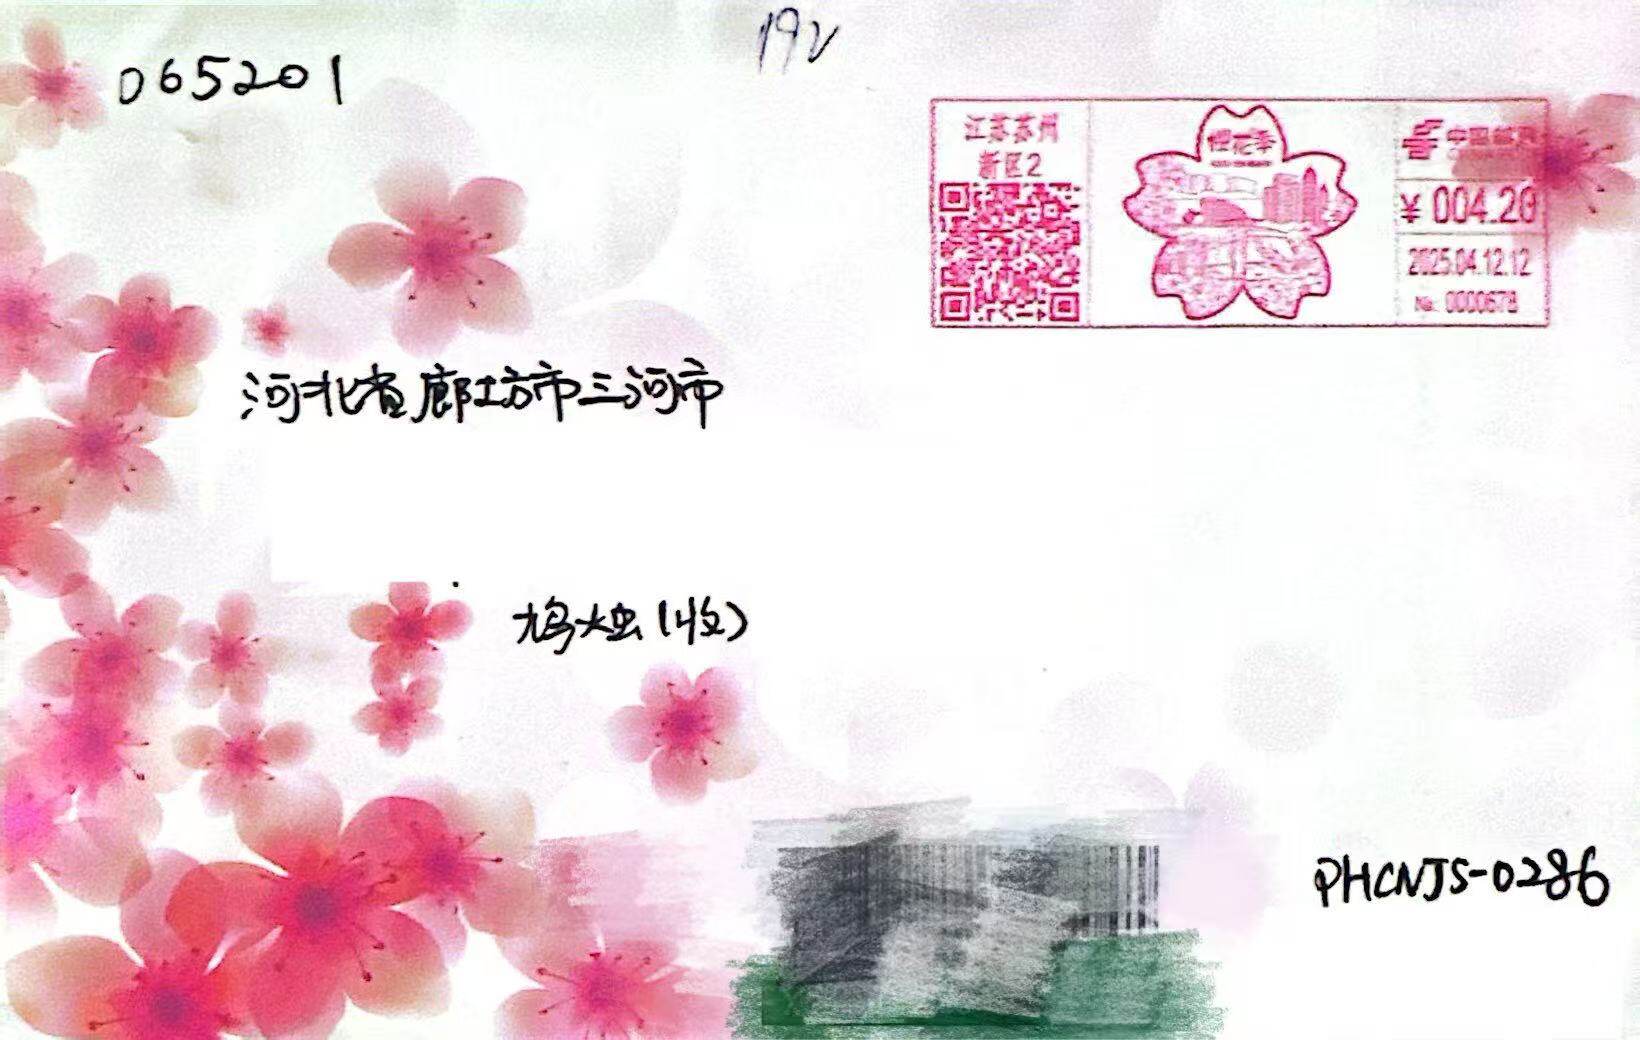 192
065201
江苏苏州
新区2
樱花季
中国邮政
¥ 004.20
2025.04.12.12
№ 0000678
河北省廊坊市三河市
鸠烛(收)
PHCNJS-0286